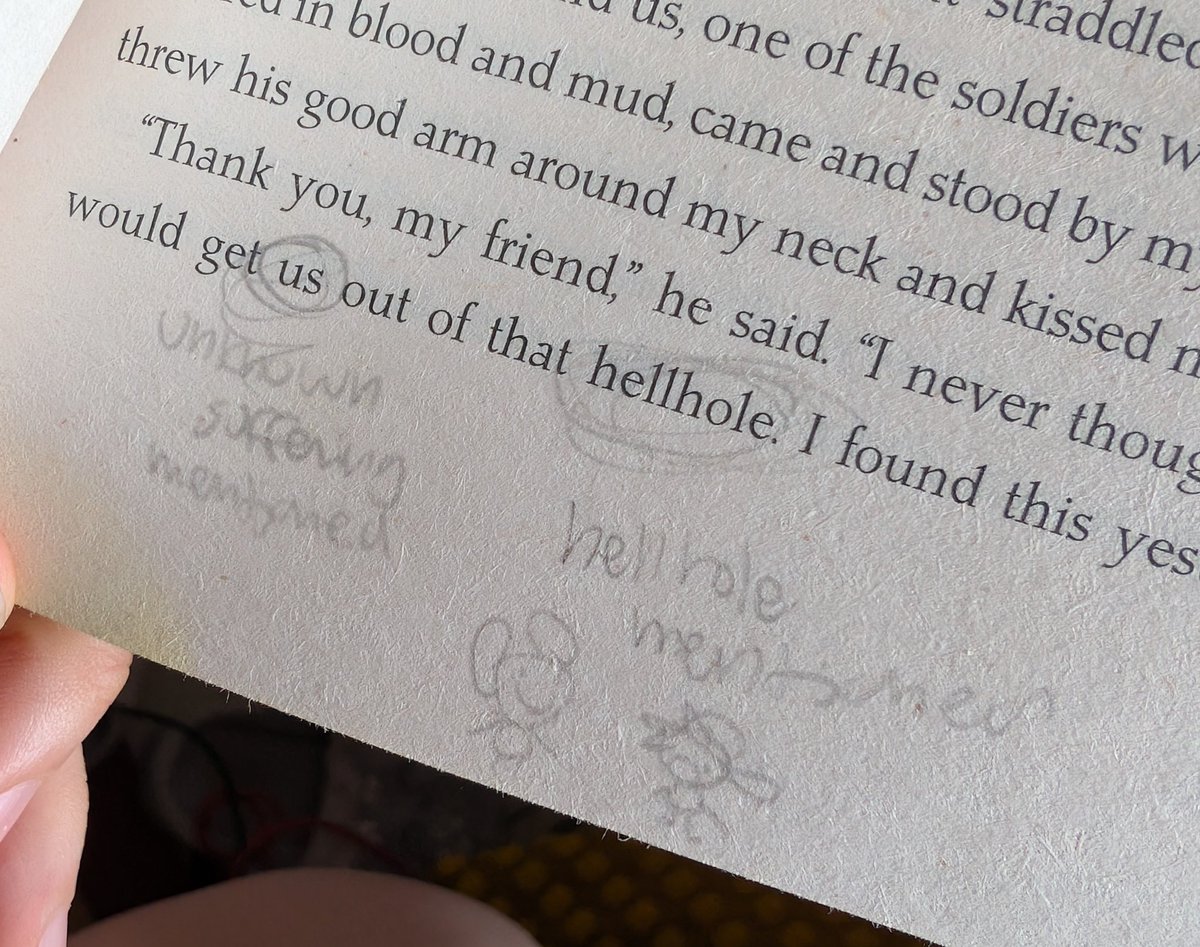 us, one of the soldiers
in blood and mud, came and stood by
threw his good arm around my neck and kissed
“Thank you, my friend,” he said. “I never
would get us out of that hellhole. I found this
unknown
suffering
hellhole